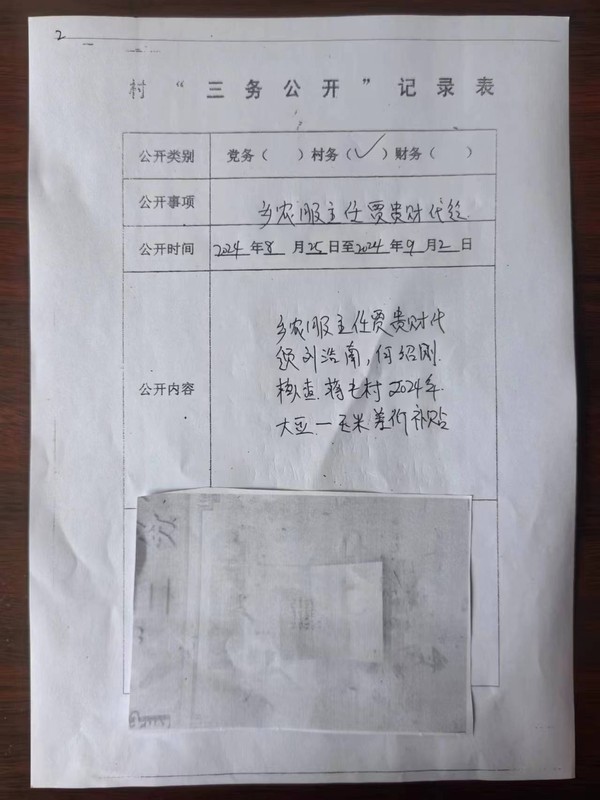 2
村“三务公开”记录表
公开类别 党务（ ）村务（✓）财务（ ）
公开事项 乡农服主任贾贵财代领
公开时间 2024年8月25日至2024年9月2日
乡农服主任贾贵财代
领刘浩南，何绍刚
公开内容 核查蒋毛村2024年
大豆—玉米差价补贴